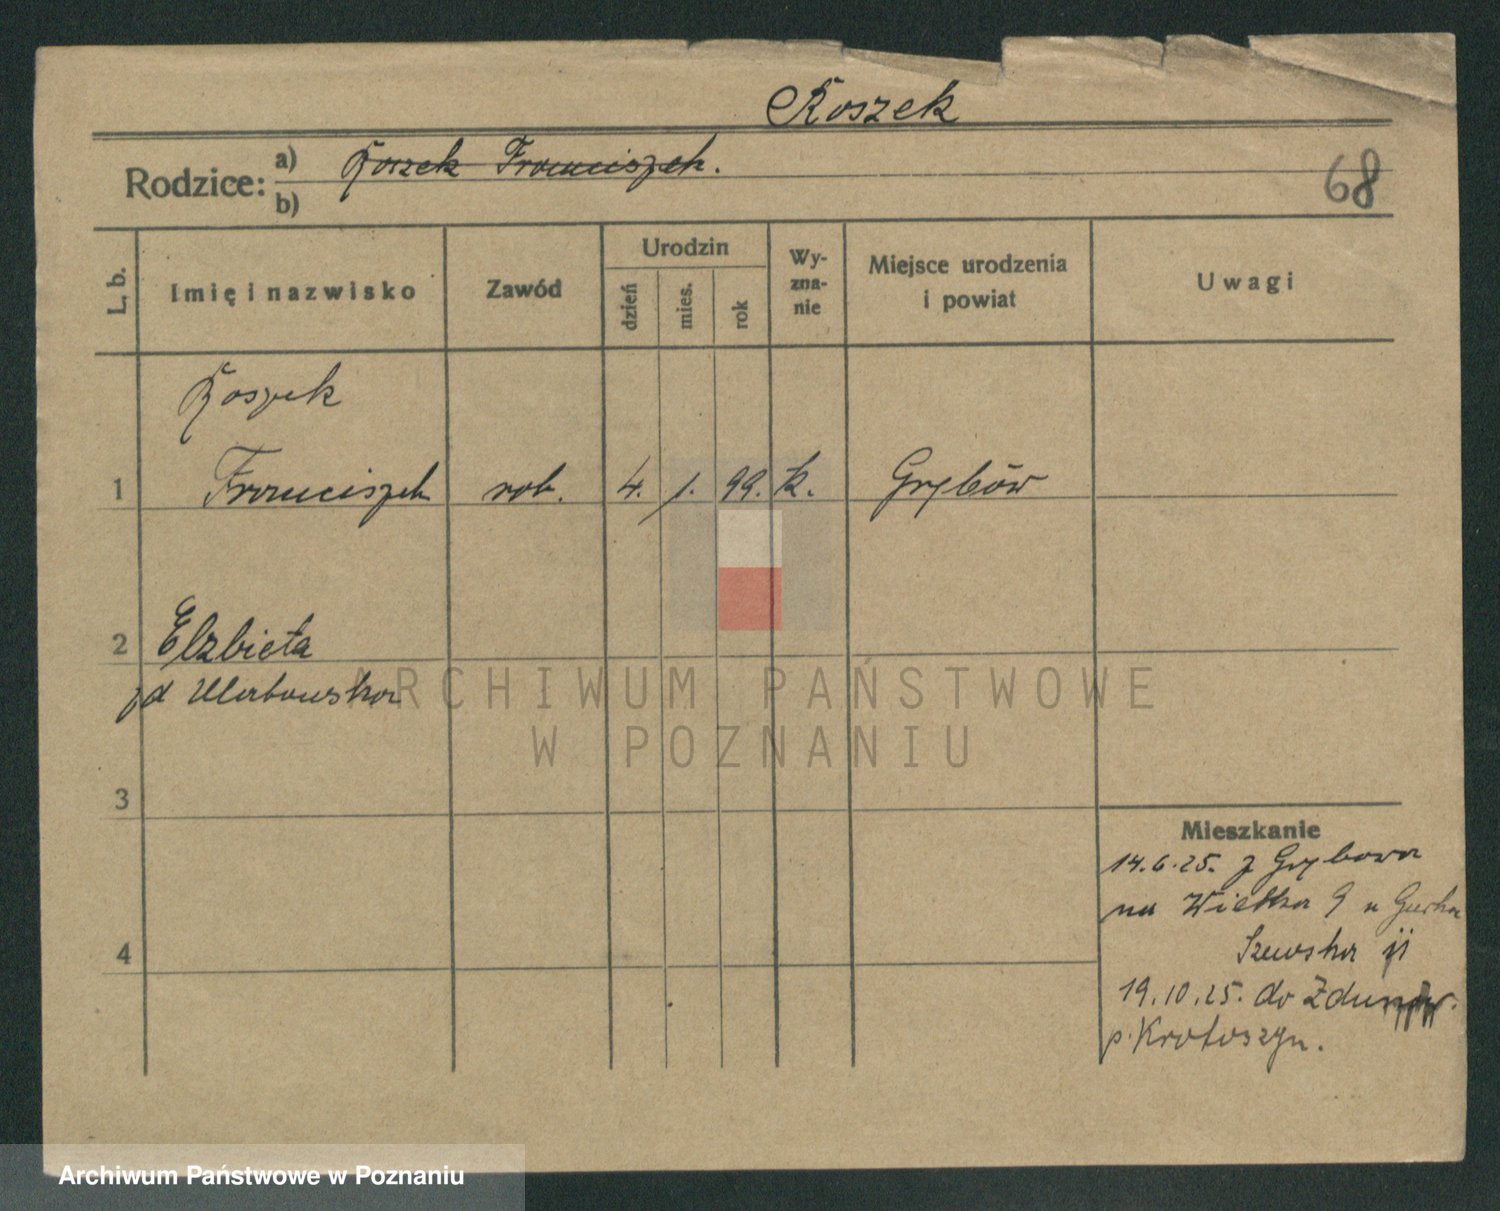 Koszek
Rodzice: a) Koszek Franciszek.
b)
68
L. b.
Imię i nazwisko
Zawód
Urodzin
dzień
mies.
rok
Wy-
zna-
nie
Miejsce urodzenia
i powiat
Uwagi
Koszek
1 Franciszek rob. 4. 1. 99. k. Grybów
2 Elzbieta
zd
3
4
Mieszkanie
14.6.25. z Grybowa
na Wielka 9 u
Szewska 11
19.10.25. do Zduny
p. Krotoszyn.
ARCHIWUM PAŃSTWOWE
W POZNANIU
Archiwum Państwowe w Poznaniu